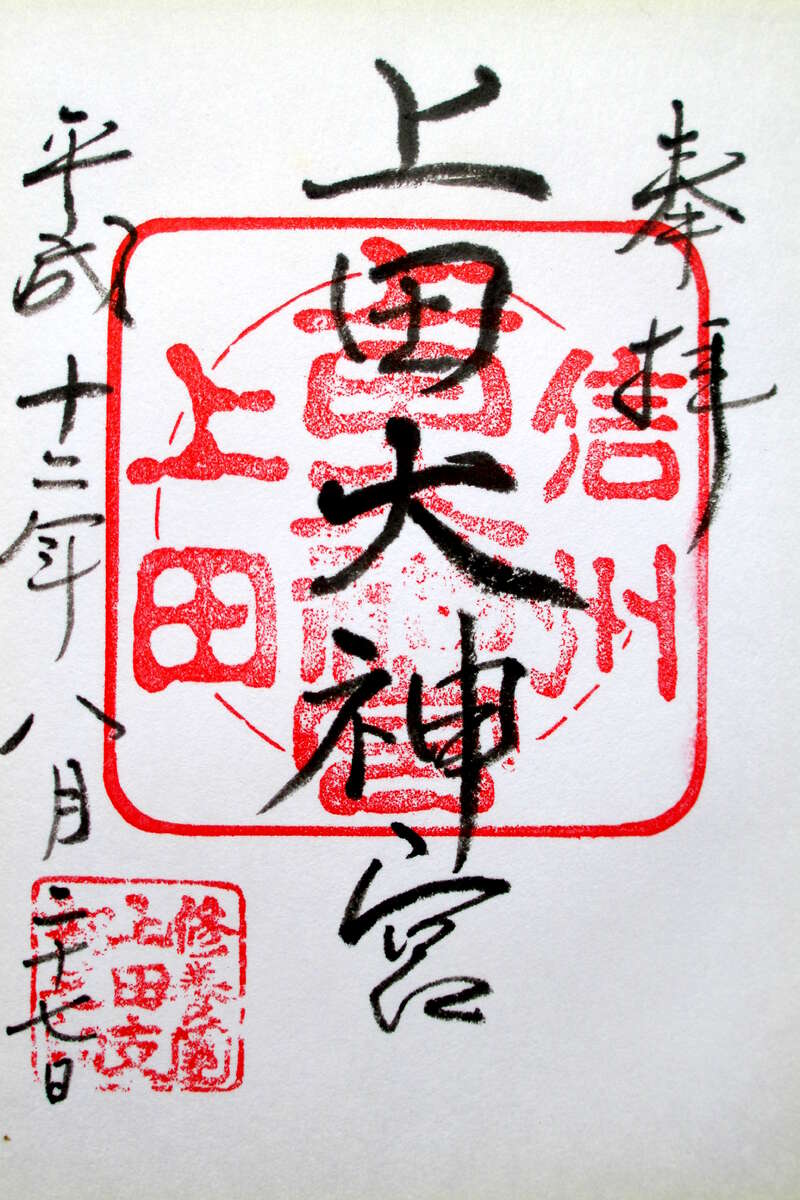 奉拝
上田大神宮
平成十二年八月二十七日
信
上田
上田支